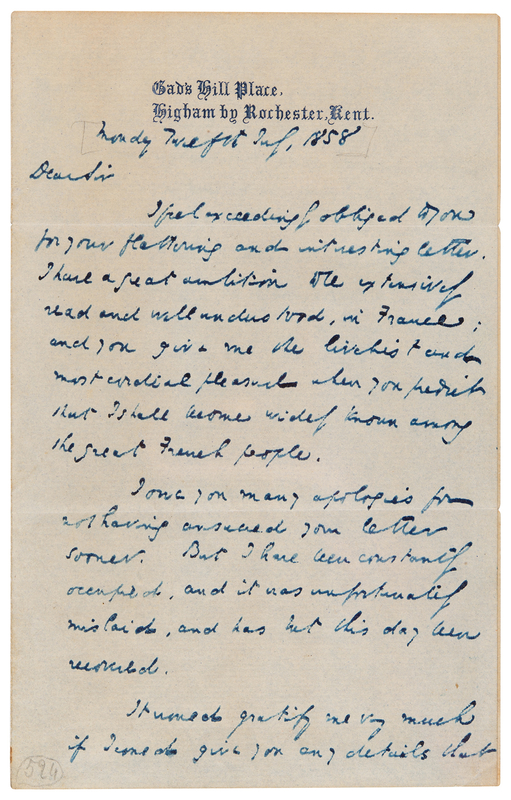 Gad's Hill Place,
Higham by Rochester, Kent.
Monday Twelfth July, 1858
Dear Sir
I feel exceedingly obliged to you
for your flattering and interesting letter.
I have a great ambition to be extensively
read and well understood, in France;
and you give me the liveliest and
most cordial pleasure when you predict
that I shall become widely known among
the great French people.
I owe you many apologies for
not having answered your letter
sooner. But I have been constantly
occupied, and it was unfortunately
mislaid, and has but this day been
recovered.
It would gratify me very much
if I could give you any details that
594